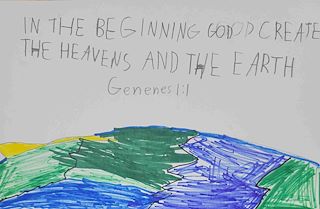 IN THE BEGINNING GODOD CREATE
THE HEAVENS AND THE EARTH
Genenes 1:1